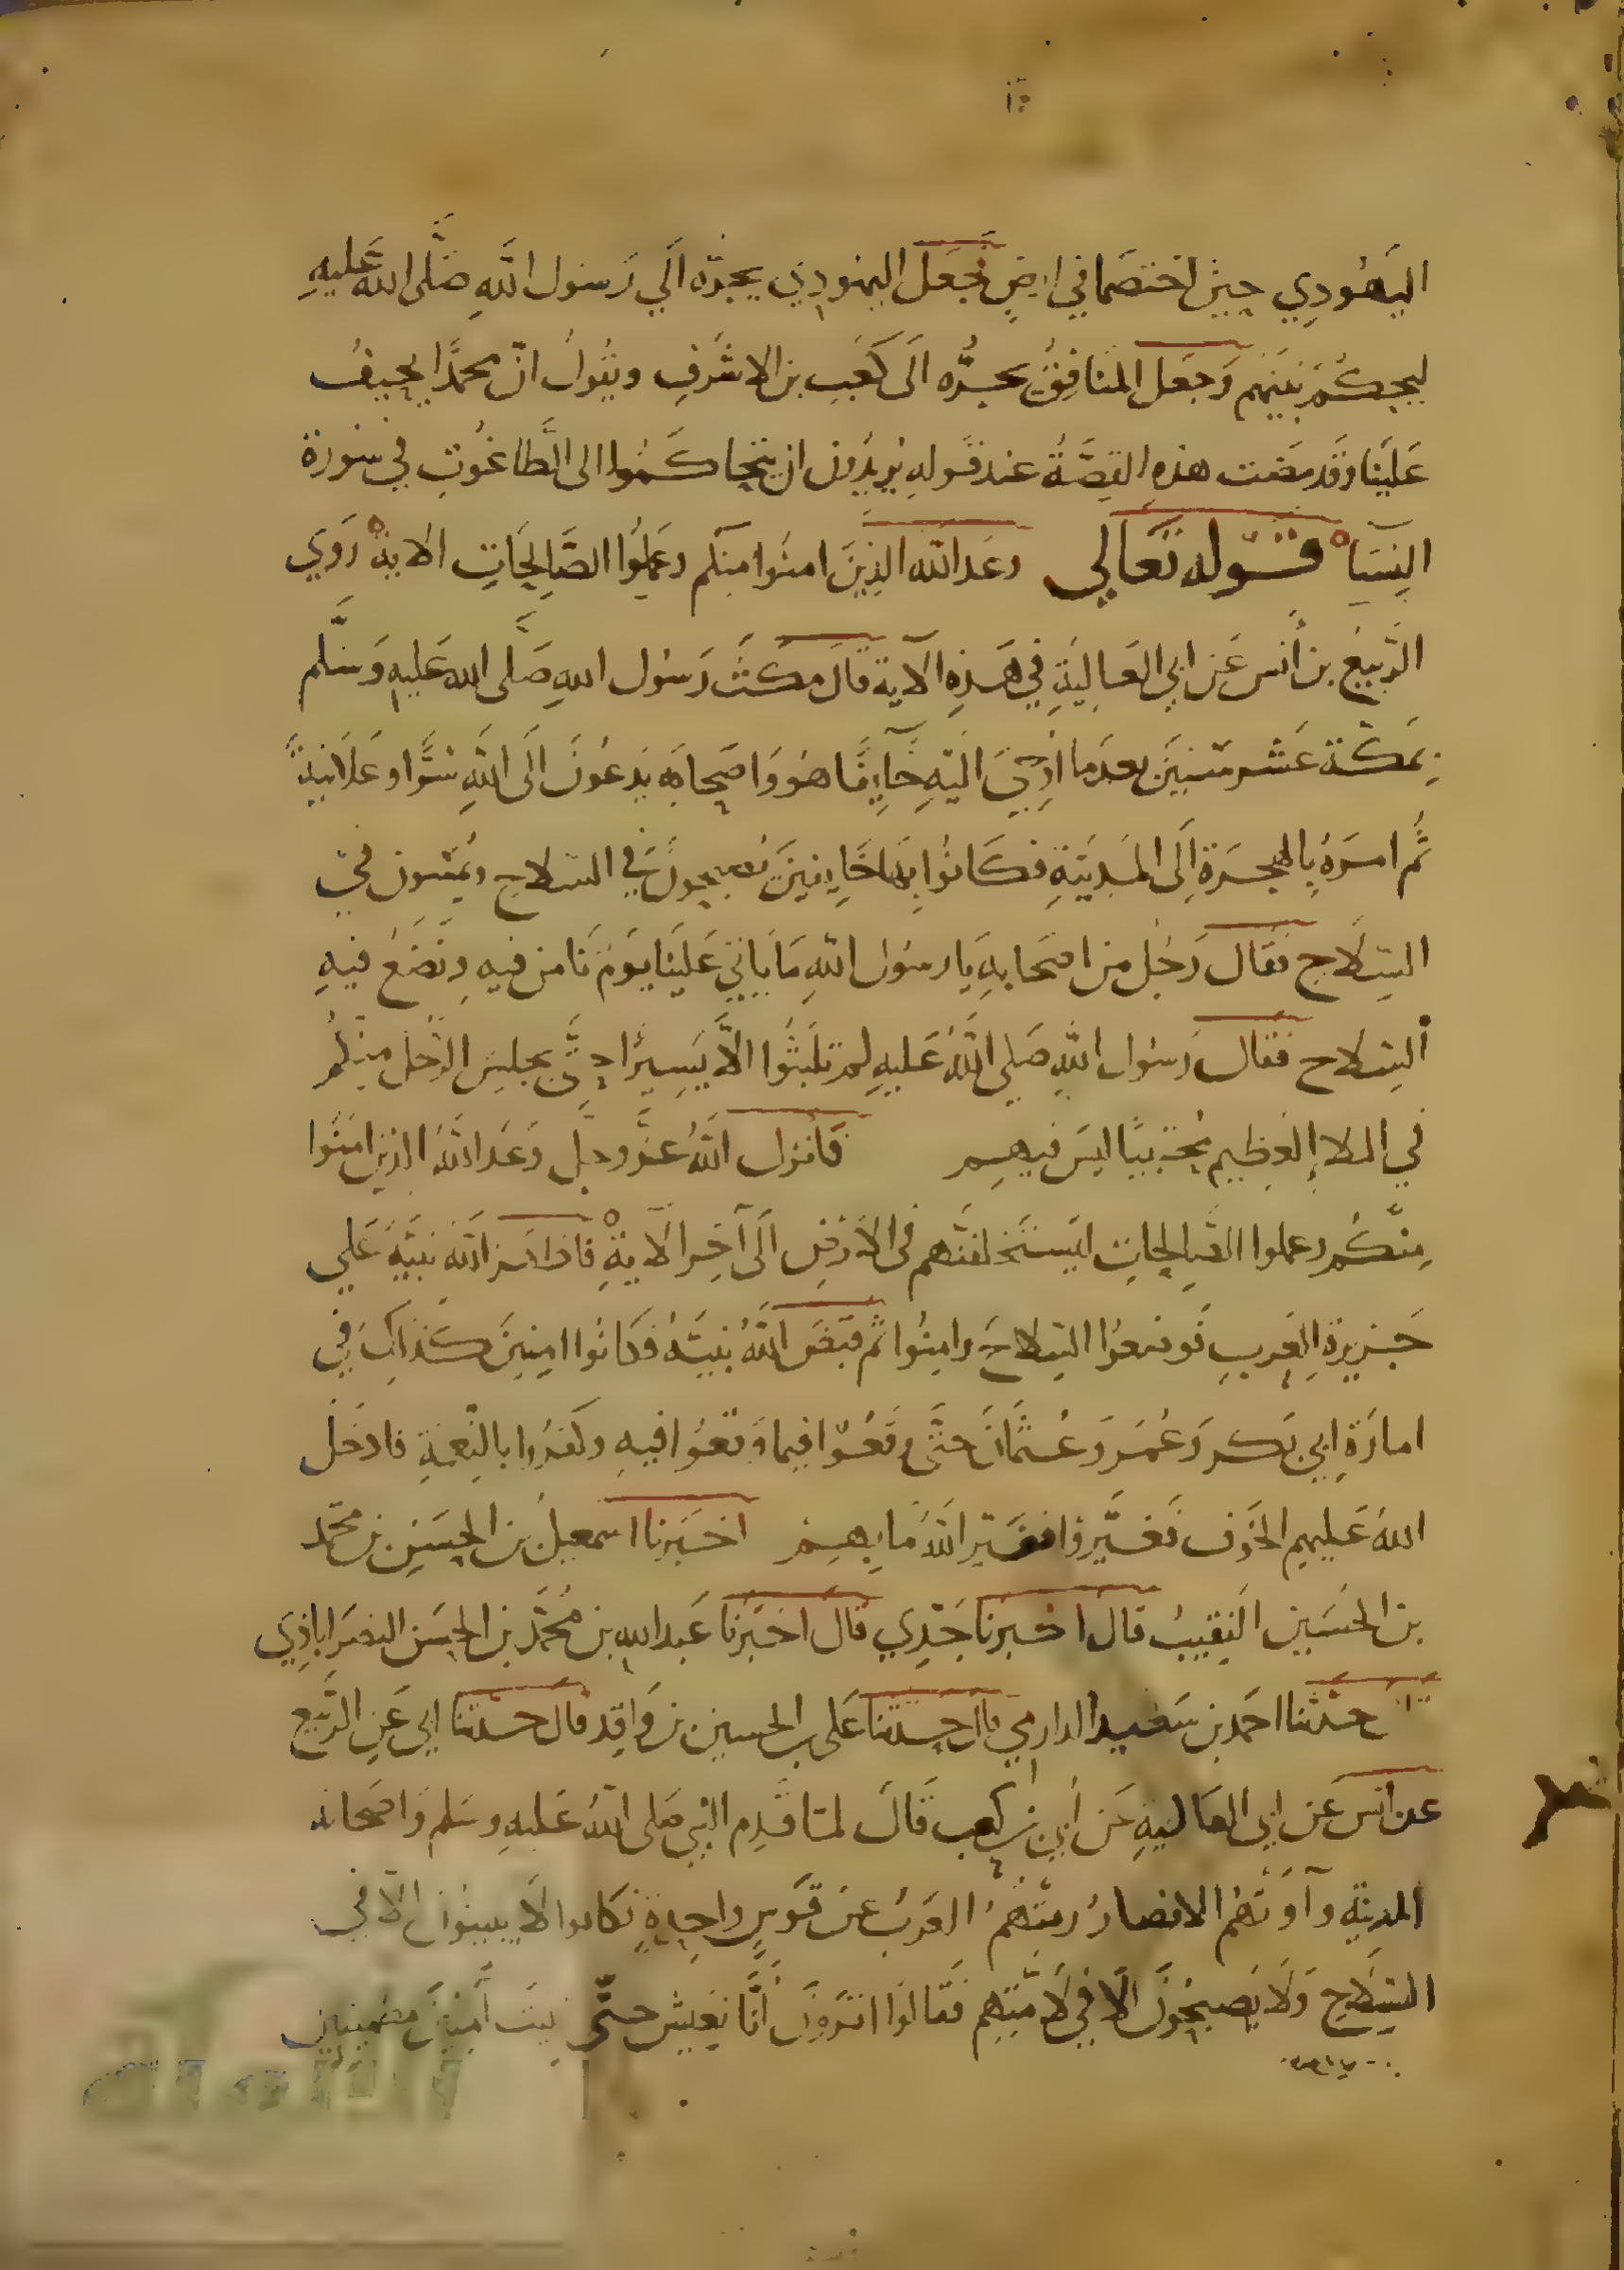 اليهودي حين اختصما في ارض فجعل اليهودي يجره الى رسول الله صلى الله عليه
ليحكم بينهم وجعل المنافق يجره الى كعب بن الاشرف ويقول ان محمدا يحيف
علينا وقد مضت هذه القصة عند قوله يريدون ان يتحاكموا الى الطاغوت في سورة
النسا قوله تعالى وعد الله الذين امنوا منكم وعملوا الصالحات الاية روى
الربيع بن أنس عن ابي العالية في هذه الآية قال مكث رسول الله صلى الله عليه وسلم
بمكة عشر سنين بعد ما أوحي اليه خايفا هو واصحابه يدعون الى الله سرا وعلانية
ثم امره بالهجرة إلى المدينة فكانوا بها خايفين يصبحون في السلاح ويمسون في
السلاح فقال رجل من اصحابه يا رسول الله ما ياتي علينا يوم نامن فيه ونضع فيه
السلاح فقال رسول الله صلى الله عليه لم تلبثوا الا يسيرا حتى يجلس الرجل منكم
في الملاء العظيم محتبيا ليس فيهم فانزل الله عز وجل وعد الله الذين امنوا
منكم وعملوا الصالحات ليستخلفنهم في الارض الى آخر الآية فاظهر الله نبيه على
جزيرة العرب فوضعوا السلاح وامنوا ثم قبض الله نبيه فكانوا امنين كذلك في
امارة ابي بكر وعمر وعثمان حتى وقعوا فيما وقعوا فيه وكفروا بالنعمة فادخل
الله عليهم الخوف فغيروا فغير الله ما بهم اخبرنا اسمعيل بن الحسن بن محمد
بن الحسين النقيب قال اخبرنا جدي قال اخبرنا عبد الله بن محمد بن الحسن النصراباذي
حدثنا احمد بن سعيد الدارمي قال حدثنا على بن الحسين بن واقد قال حدثنا ابي عن الربيع
عن انس عن ابي العالية عن أبي بن كعب قال لما قدم النبي صلى الله عليه وسلم واصحابه
المدينة وآوتهم الانصار رمتهم العرب عن قوس واحدة فكانوا لا يبيتون الا في
السلاح ولا يصبحون الا في لامتهم فقالوا اترون أنا نعيش حتى نبيت آمنين مطمينين